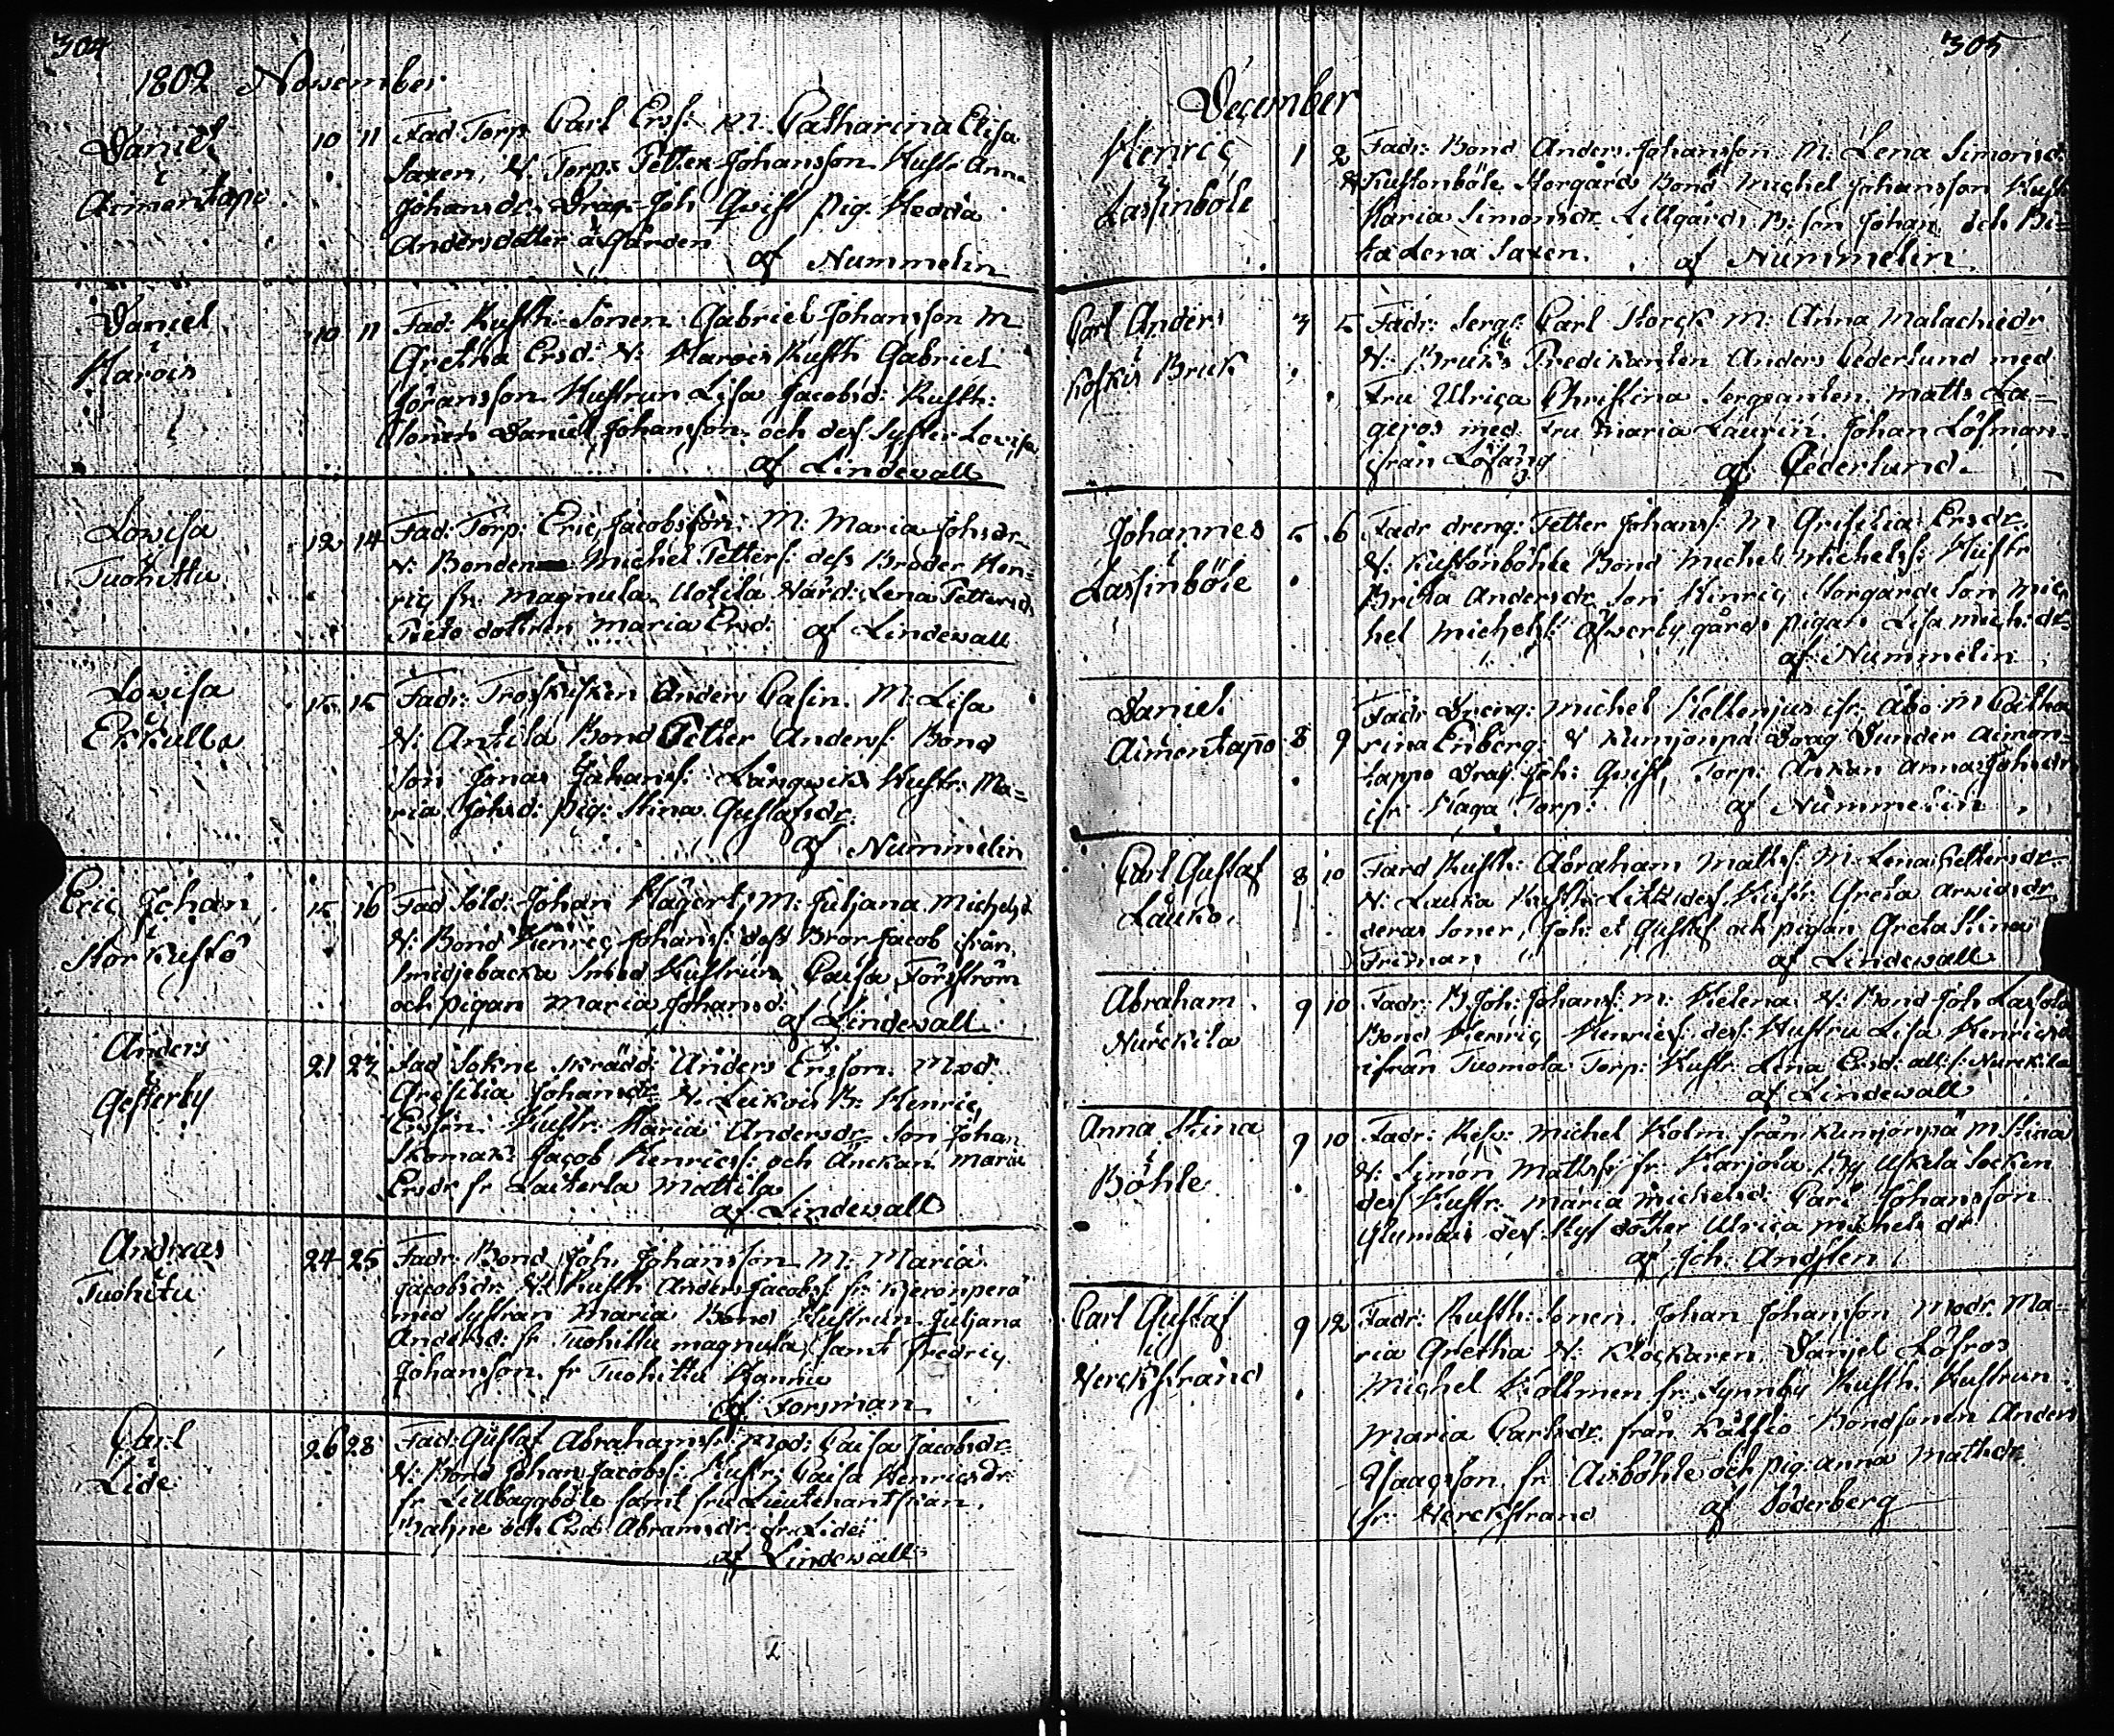 304
1802 November
Daniel
i
Aimontapo
10 11
Fad: Torp. Carl Ersf: M: Catharina Elisa
Saxen, V. Torp: Petter Johansson Hustr Anna
Johansdr. Drag: Joh Qwist Pig. Hedda
Andersdotter å Gården
af Nummelin
Daniel
i
Harois
10 11
Fad: Rusth: Sonen Gabriel Johansson M
Gretha Ersd: V: Harois Rusth Gabriel
Göransson Hustrun Lisa Jacobsd: Rusth:
Sonen Daniel Johansson och des Syster Lovisa
af Lindewall
Lowisa
Tuohittu
12 14
Fad: Torp: Eric Jacobsson M: Maria Johsdr
V: Bonden Michel Petters: dess Broder Hen=
ric fr: Magnula Uotila Värd: Lena Pettersd
dottren Maria Ersd: af Lindewall
Lovisa
i
Erkulla
15 15
Fadr: Anders Casin. M: Lisa
V: Antila Bond Petter Anders: Bond
son Jonas Johans: Långwiks Hustr: Ma=
ria Johsd: pig: Stina Gustafsdr:
af Nummelin
Eric Johan
i
Stor Kustö
15 16
Fad Sold: Johan Hågert, M: Juljana Michelsd
V: Bond Henric Johans: dess Bror Jacob ifrån
Smedjebacka Smed Hustrun Caisa Förström
och pigan Maria Johansd:
af Lindewall
Anders
i
Gesterby
21 23
Fad Sokne skrädd: Anders Ersson. Mod:
Gresilia Johansdr: V: Leikois B: Henric
Ersson. Hustr: Maria Andersdr Son Johan
Skomak: Jacob Henricss: och Änckan Maria
Ersdr fr Lauterla Mattila
af Lindewall
Andreas
Tuohitu
24 25
Fadr: Bond Joh: Johansson M: Maria
Jacobsdr: V: Rusth Anders Jacobss fr: Kjeronperä
med Systran Maria Bond Hustrun Juljana
Andersd: fr Tuohittu magnula samt Fredric
Johansson. fr Tuohittu Hannu
af Forsman
Carl
i
Lide
26 28
Fad: Gustaf Abrahams: Mod: Caisa Jacobsdr:
V: Bond Johan Jacobss: Hustr: Caisa Henricsdr:
fr Lillbaggböle samt fru Lieutenantskan
och Eva Abramsdr: fr: Lide
af Lindewall
305
December
Henric
i
Lassinböle
1 2
Fadr: Bond Anders Johansson M: Lena Simonsd:
V: Kustonböle Storgårds Bond Michel Johansson Hustr
Maria Simonsdr. Lillgårds B: son Johan och Bri=
ta Lena Saxen. af Nummelin
Carl Anders
i
Koskis Bruk
3 5
Fadr: Serg: Carl Storck M: Anna Malachiedr
V: Bruks Predikanten Anders Cederlund med
Fru Ulrica Christina Sergeanten Matts La=
geros med Fru Maria Laurin. Johan Löfman
ifrån Löfång af Cederlund
Johannes
i
Lassinböle
5 6
Fadr dreng: Petter Johans: M Grisilia Ersdr
V: Kustönböhle Bond Michel Michelss: Hustr
Brita Andersdr Son Hinric Storgårds Son Mic
hel Michelss: Öfwerby gårds pigan Lisa Mich:dr
af Nummelin
Daniel
i
Aimontapo
8 9
Fadr Dreng: Michel ifr: Åbo M Catha
rina Enberg: V Kumjonpä Drag Dunder Aimon=
tappo Drag: Joh: Qwist, Torp: Änkan Anna Johsdr
ifr Haga Torp: af Nummelin
Carl Gustaf
i
Lauko
8 10
Fard Rusth: Abraham Matts: M Lena Pettersdr
V: Lauka Rusth: des Hustr: Greta Arwidsdr
deras Soner, Joh: et Gustaf och pigan Greta Stina
Friman af Lindewall
Abraham
Nurckila
9 10
Fadr: B: Joh: Johans: M: Helena V: Bond Joh Lassola
Bond Henric Henrics: des: Hustru Lisa Henricsd
ifrån Tuomola Torp: Hustr. Lena Ersd: all: f: Nurckila
af Lindewall
Anna Stina
i
Böhle
9 10
Fadr: Resv: Michel Holm från Kumjonpä M Stina
V: Simon Matts: fr: Karjola By Uskela Socken
des Hustr: Maria Michelsd: Carl Johansson
des Styf dotter Ulrica Michels dr
af Joh: Andsten
Carl Gustaf
i
Verckstrand
9 12
Fadr: Rusth: Sonen Johan Johansson Modr: Ma=
ria Gretha V: Klockaren Daniel Löfros
Michel Hollmen fr: Synnby Rusth: Hustrun
Maria Carlsdr. från Kålfio Bondsonen Anders
Isaacsson fr: Aisböhle och pig: Anna Mathsdr
fr: Verckstrand af Söderberg